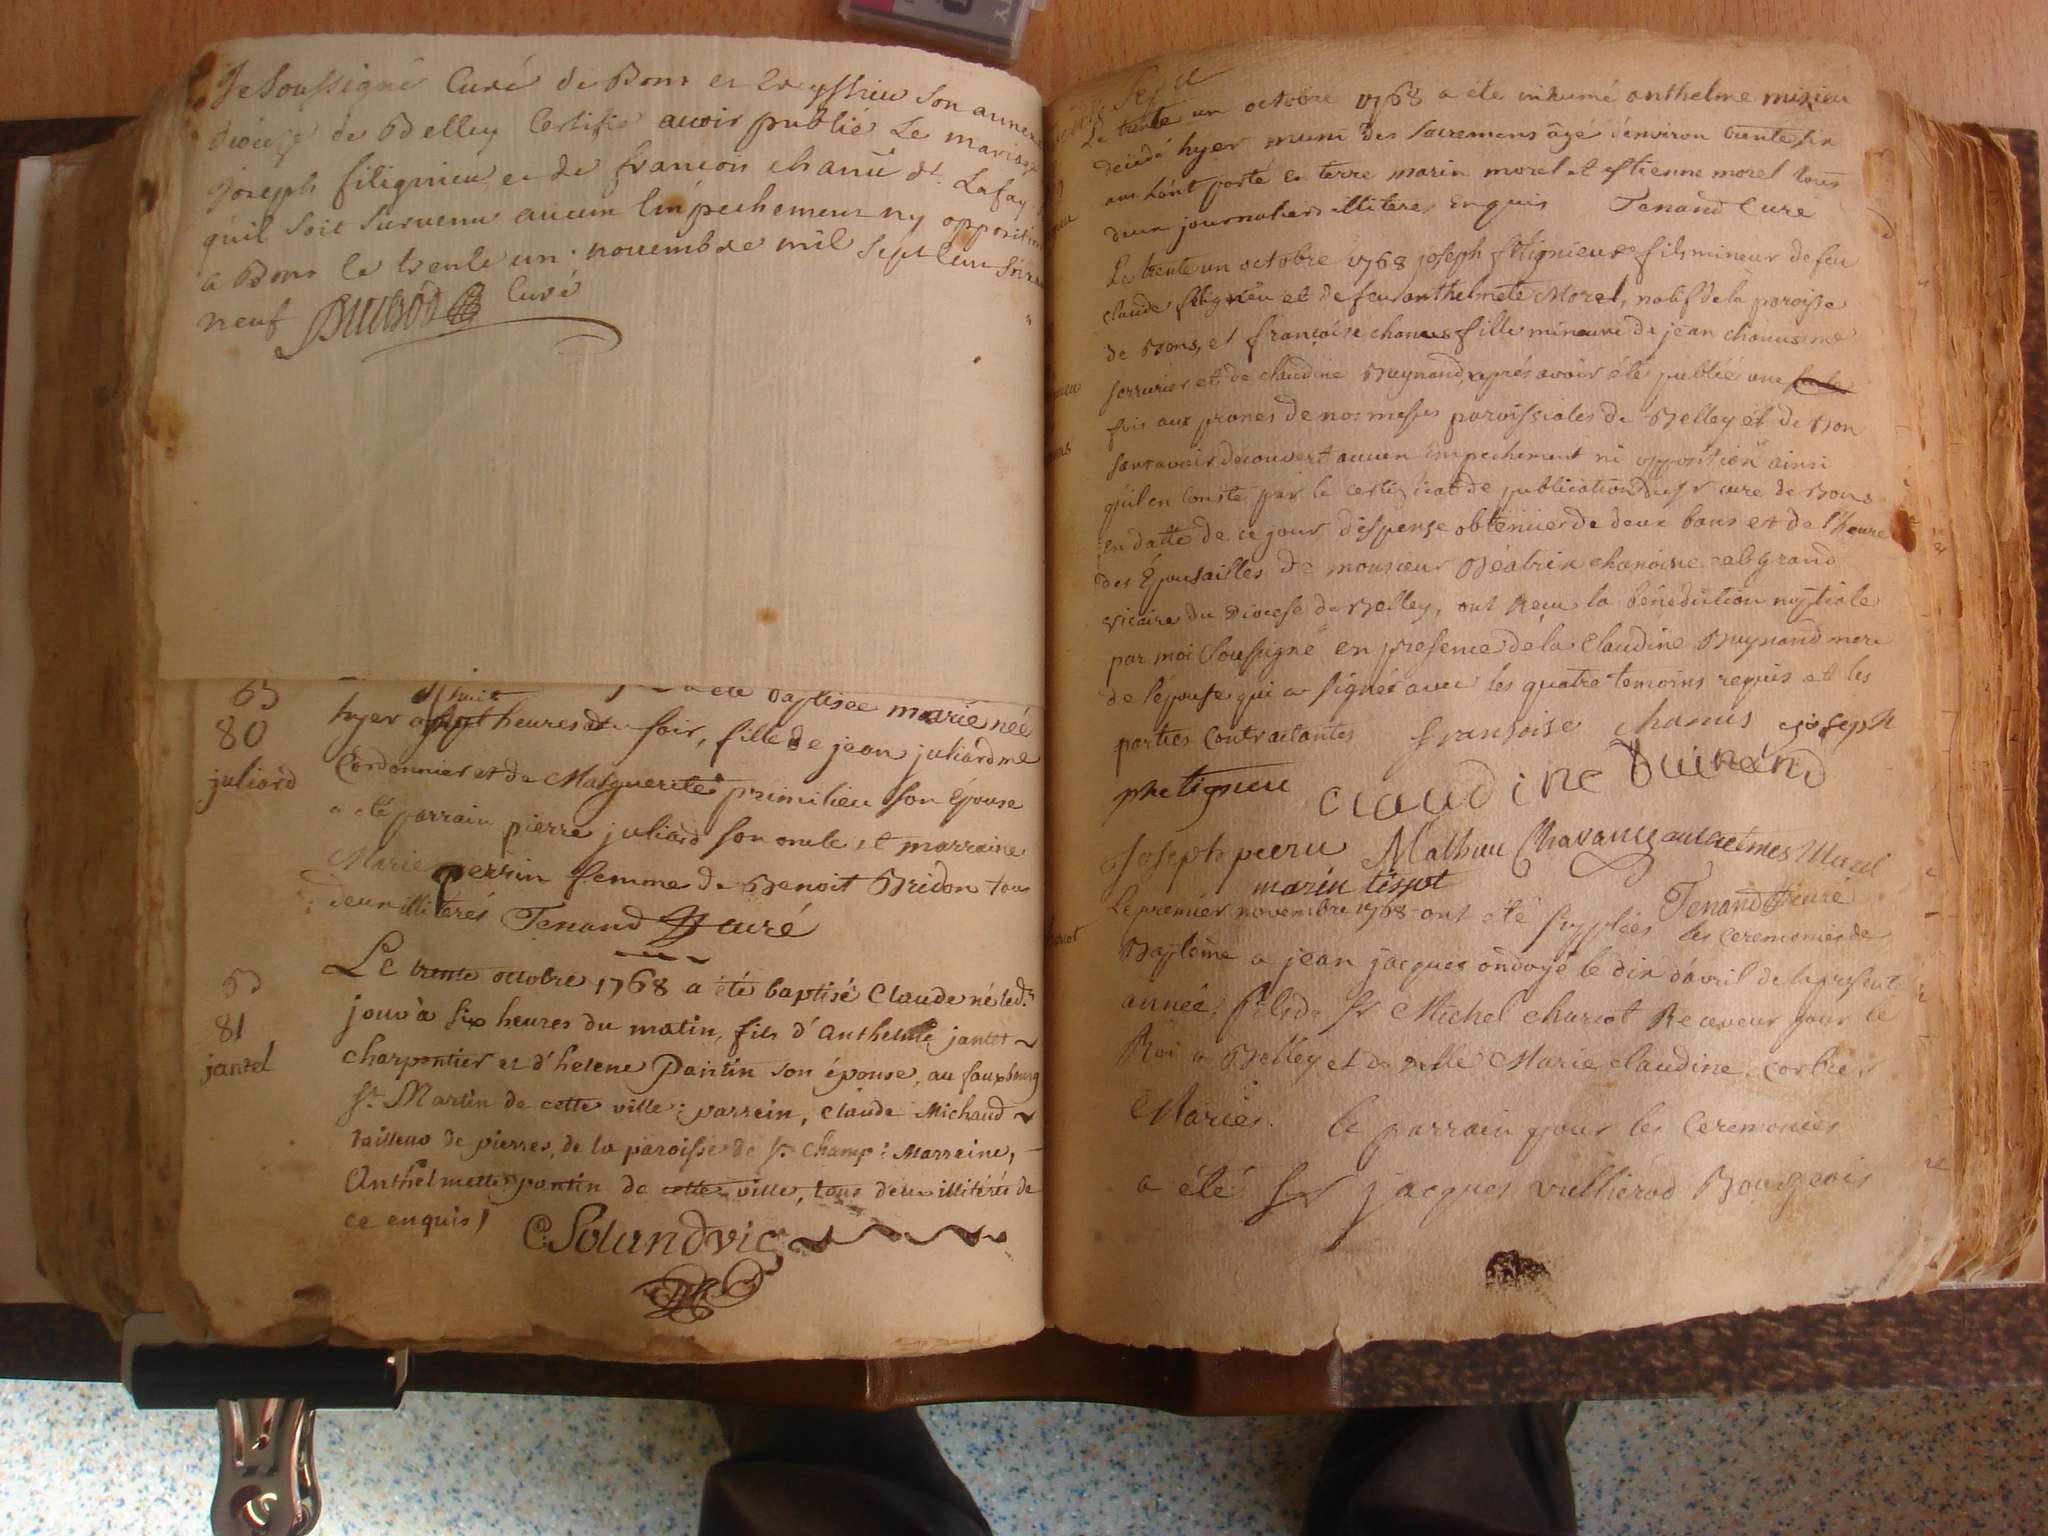 Je Soussigné Curé de Bons et Creyssieu son annexe
diocese de Belley Certifie avoir publié Le mariage
joseph fitignieu et de francois chanu dt. Lafay
quil soit survenu aucun Empechement ny opposition
a Bons le trente un novembre mil sept Cent Soixan
neuf Curé
été baptisée marie née
hyer a huit heures du soir, fille de jean juliard me
Cordonnier et de Marguerite primilieu son épouse
a été parrain pierre juliard son oncle et marraine
Marie perrin femme de Benoit Bridon tous
deux illiterés Tenand curé
63
80
juliard
Le trente octobre 1768 a été baptisé Claude né led.
jour à six heures du matin, fils d'Anthelme jantet
charpentier et d'helene Pantin son épouse, au fauxbourg
St. Martin de cette ville; parrein, Claude Michaud
tailleur de pierres, de la paroisse de St. Champ; Marraine,
Anthelmette pantin de cette ville, tous deux illitérés de
ce enquis /
C Soland vic
53
81
jantel
Le trente un octobre 1768 a été inhumé anthelme misieu
decedé hyer muni des sacremens âgé d'environ trente six
ans L'ont porté en terre marin morel et Estienne morel tous
deux journaliers illiteres Enquis Tenand Curé
Le trente un octobre 1768 joseph fétignieux fils mineur de feu
claude fétignieu et de feu anthelmete Morel, natif de la paroisse
de Bons, et françoise chanus fille mineure de jean chanus me
serrurier et de claudine Buynand, après avoir été publié une
fois aux prones de nos messes paroissiales de Belley et de Bon
sans avoir decouvert aucun Empechement ni opposition ainsi
qu'il en Conste par le certificat de publication du Sr curé de Bons
en datte de ce jour dispense obtenue de deux bans et de l'heure
des Epousailles de monsieur Béatrix chanoine et grand
vicaire du Diocese de Belley, ont Recu la bénédiction nuptiale
par moi Soussigné en presence de la Claudine Buynand mere
de l'épouse qui a signé avec les quatre temoins requis et les
parties Contractantes fransoise chanus joseph
phetignieu claudine buinand
Joseph peeru Mathieu Chavanus anthelmes Marel
marin tissot Tenand curé
Le premier novembre 1768 ont été supplées les ceremonies de
Baptême a jean jacques ondoyé le dix d'avril de la presente
année, fils de Sr Michel Chariot Receveur pour le
Roi a Belley et de Delle Marie claudine Corbier
Mariés. le parrain pour les Ceremonies
a été Sr jacques vulliérod Bourgeois